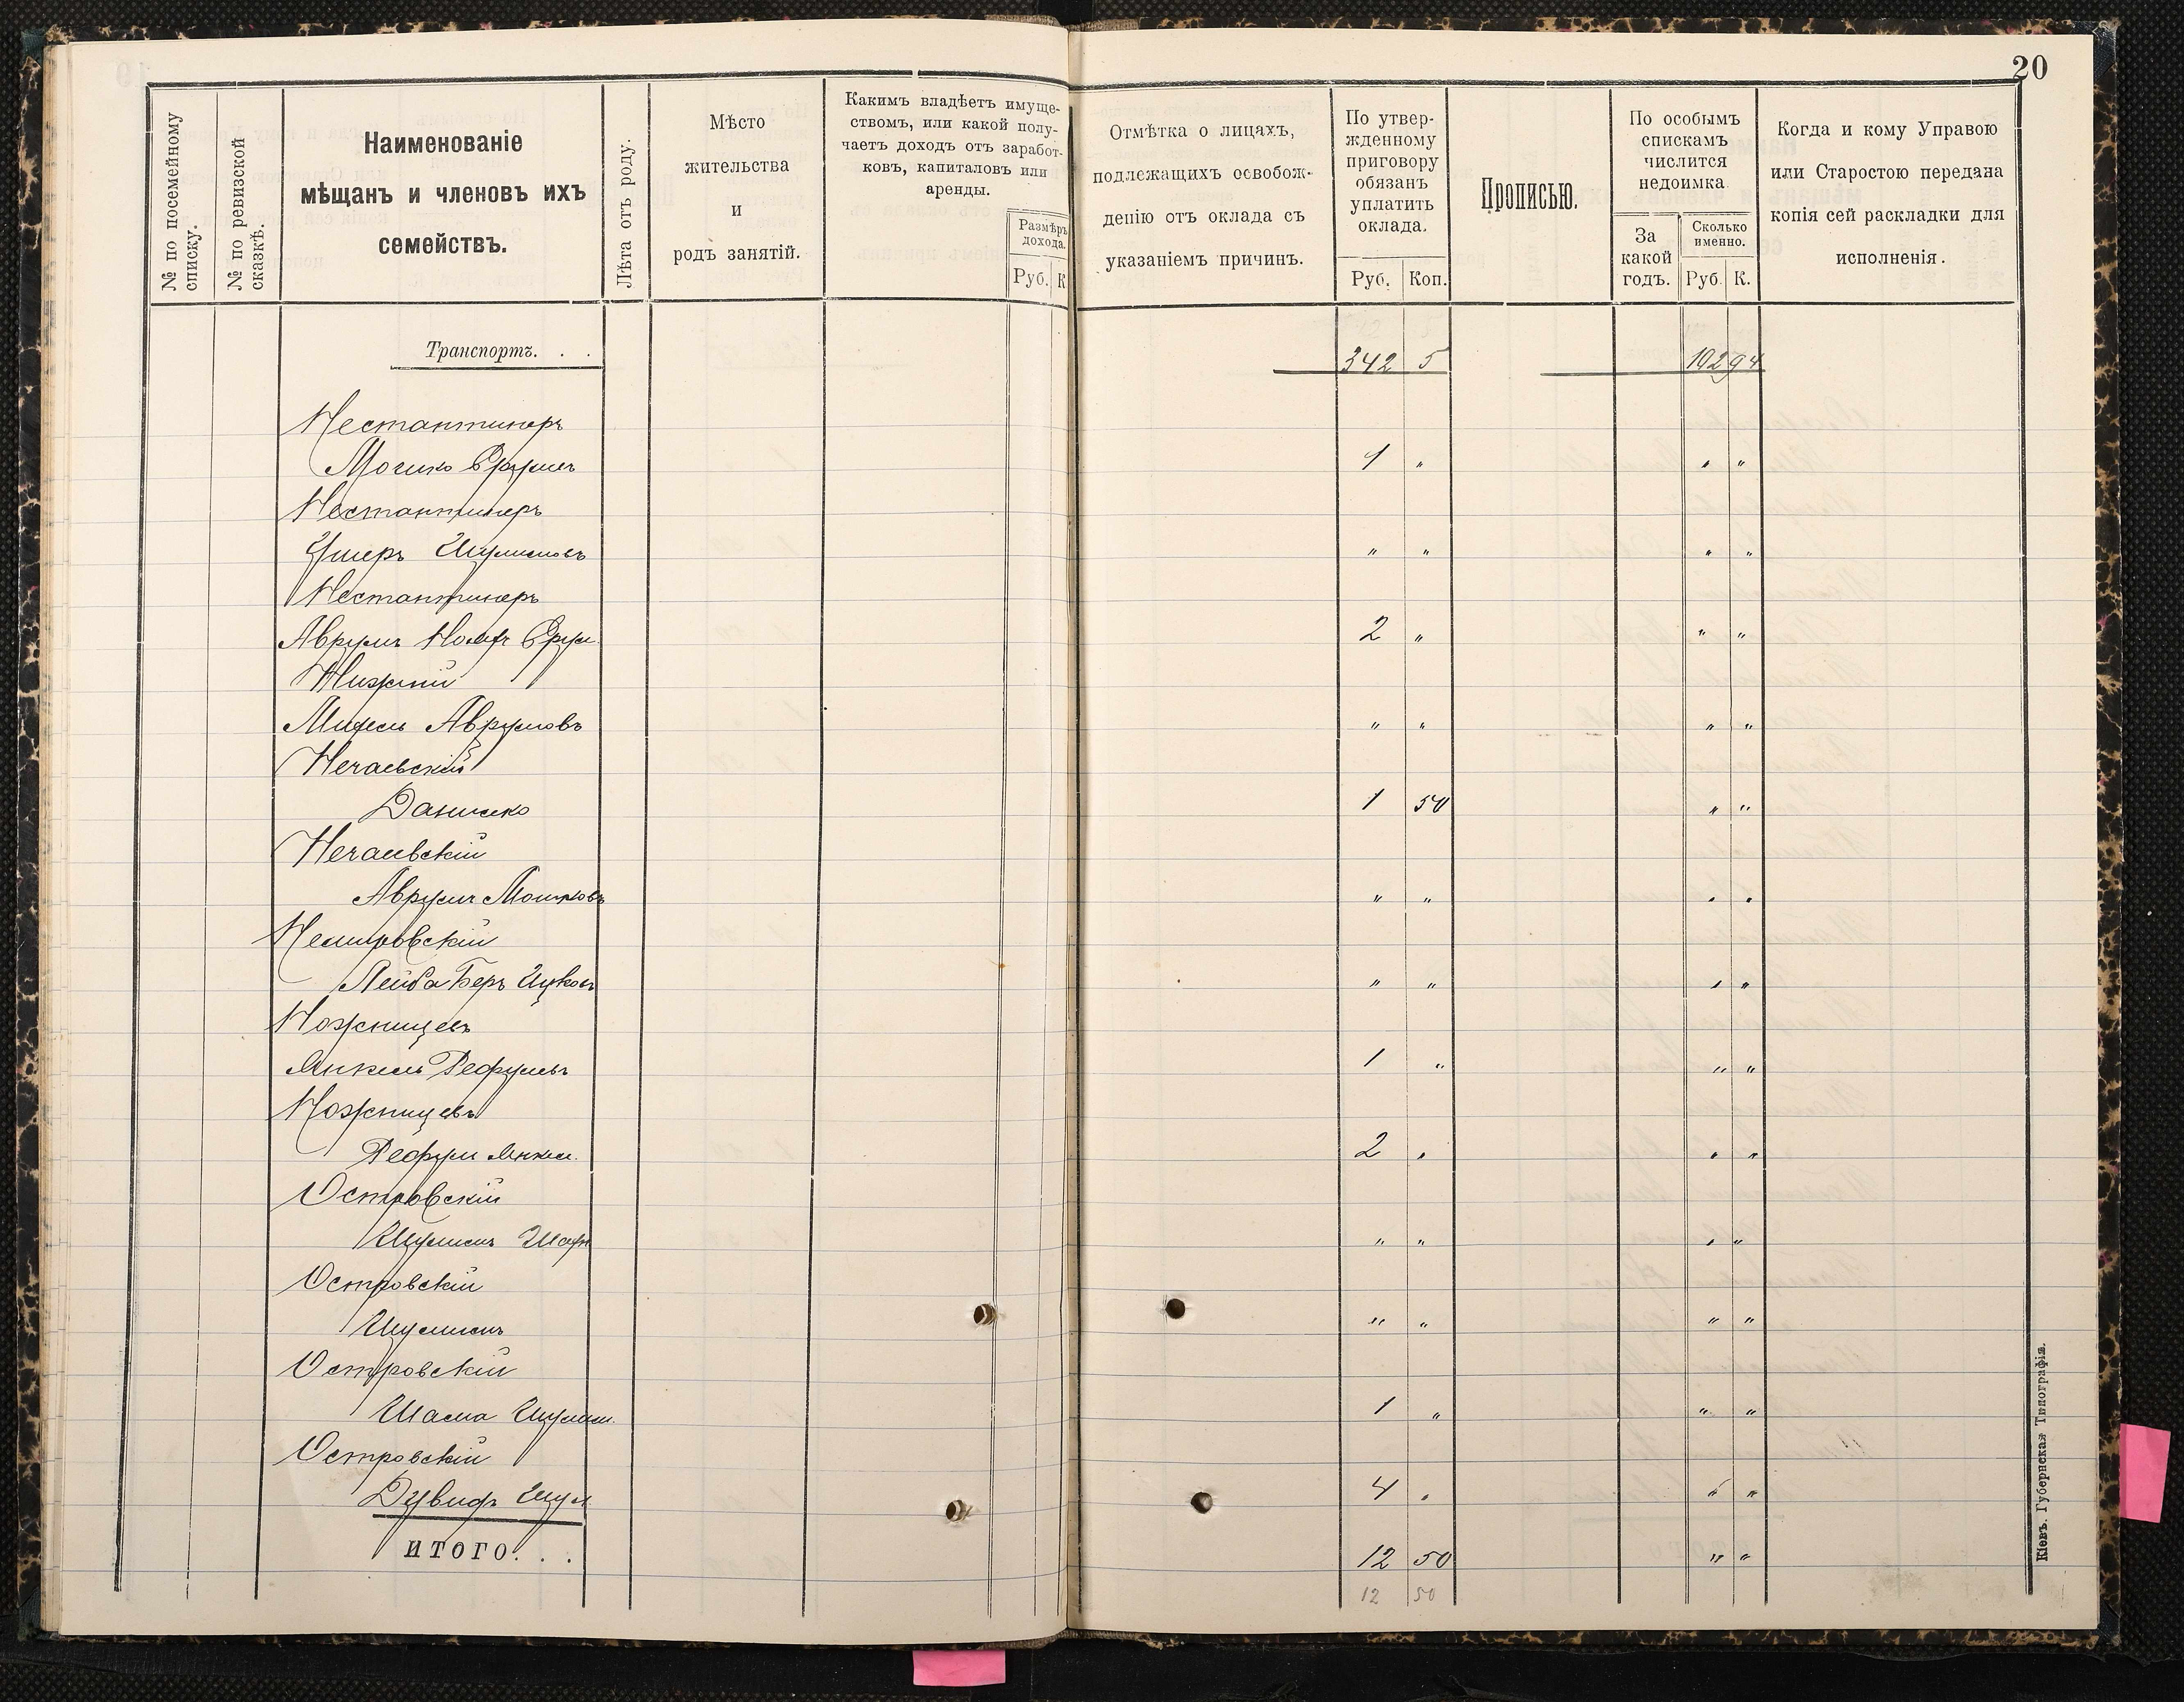 20
№ по посемейному списку.
№ по ревизской сказкѣ.
Наименованіе
мѣщанъ и членовъ ихъ
семействъ.
Лѣта отъ роду.
Мѣсто
жительства
и
родъ занятій.
Какимъ владѣетъ имуще-
ствомъ, или какой полу-
чаетъ доходъ отъ заработ-
ковъ, капиталовъ или
аренды.
Размѣръ
дохода.
Руб. К
Отмѣтка о лицахъ,
подлежащихъ освобож-
денію отъ оклада съ
указаніемъ причинъ.
По утвер-
жденному
приговору
обязанъ
уплатить
оклада.
Руб. Коп.
Прописью.
По особымъ
спискамъ
числится
недоимка
За
какой
годъ.
Сколько
именно.
Руб. К.
Когда и кому Управою
или Старостою передана
копія сей раскладки для
исполненія.
Транспортъ. . . 342 5 192 94
Нестантинеръ
Мошко Сруль 1 " " "
Нестантинеръ
Ушеръ Шулимовъ " " " "
Нестантинеръ
Аврумъ Срул. 2 " " "
Нижній
Аврумовъ " " " "
Нечаевскій
Данилко 1 50 " "
Нечаевскій
Аврумъ Мошковъ " " " "
Немировскій
Лейба Беръ Ицковъ " " " "
Ножницевъ
Янкель Рефуловъ 1 " " "
Ножницевъ
Рефул Янкел. 2 " " "
Островскій
Шулимъ " " " "
Островскій
Шулимъ " " " "
Островскій
Шама Шулим. 1 " " "
Островскій
Дувидъ Шул 4 " " "
ИТОГО. . . 12 50 " "
12 50
Кіевъ. Губернская Типографія.